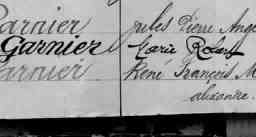 Garnier Jules Pierre Ange
Garnier Marie
Garnier René François M
alexandre